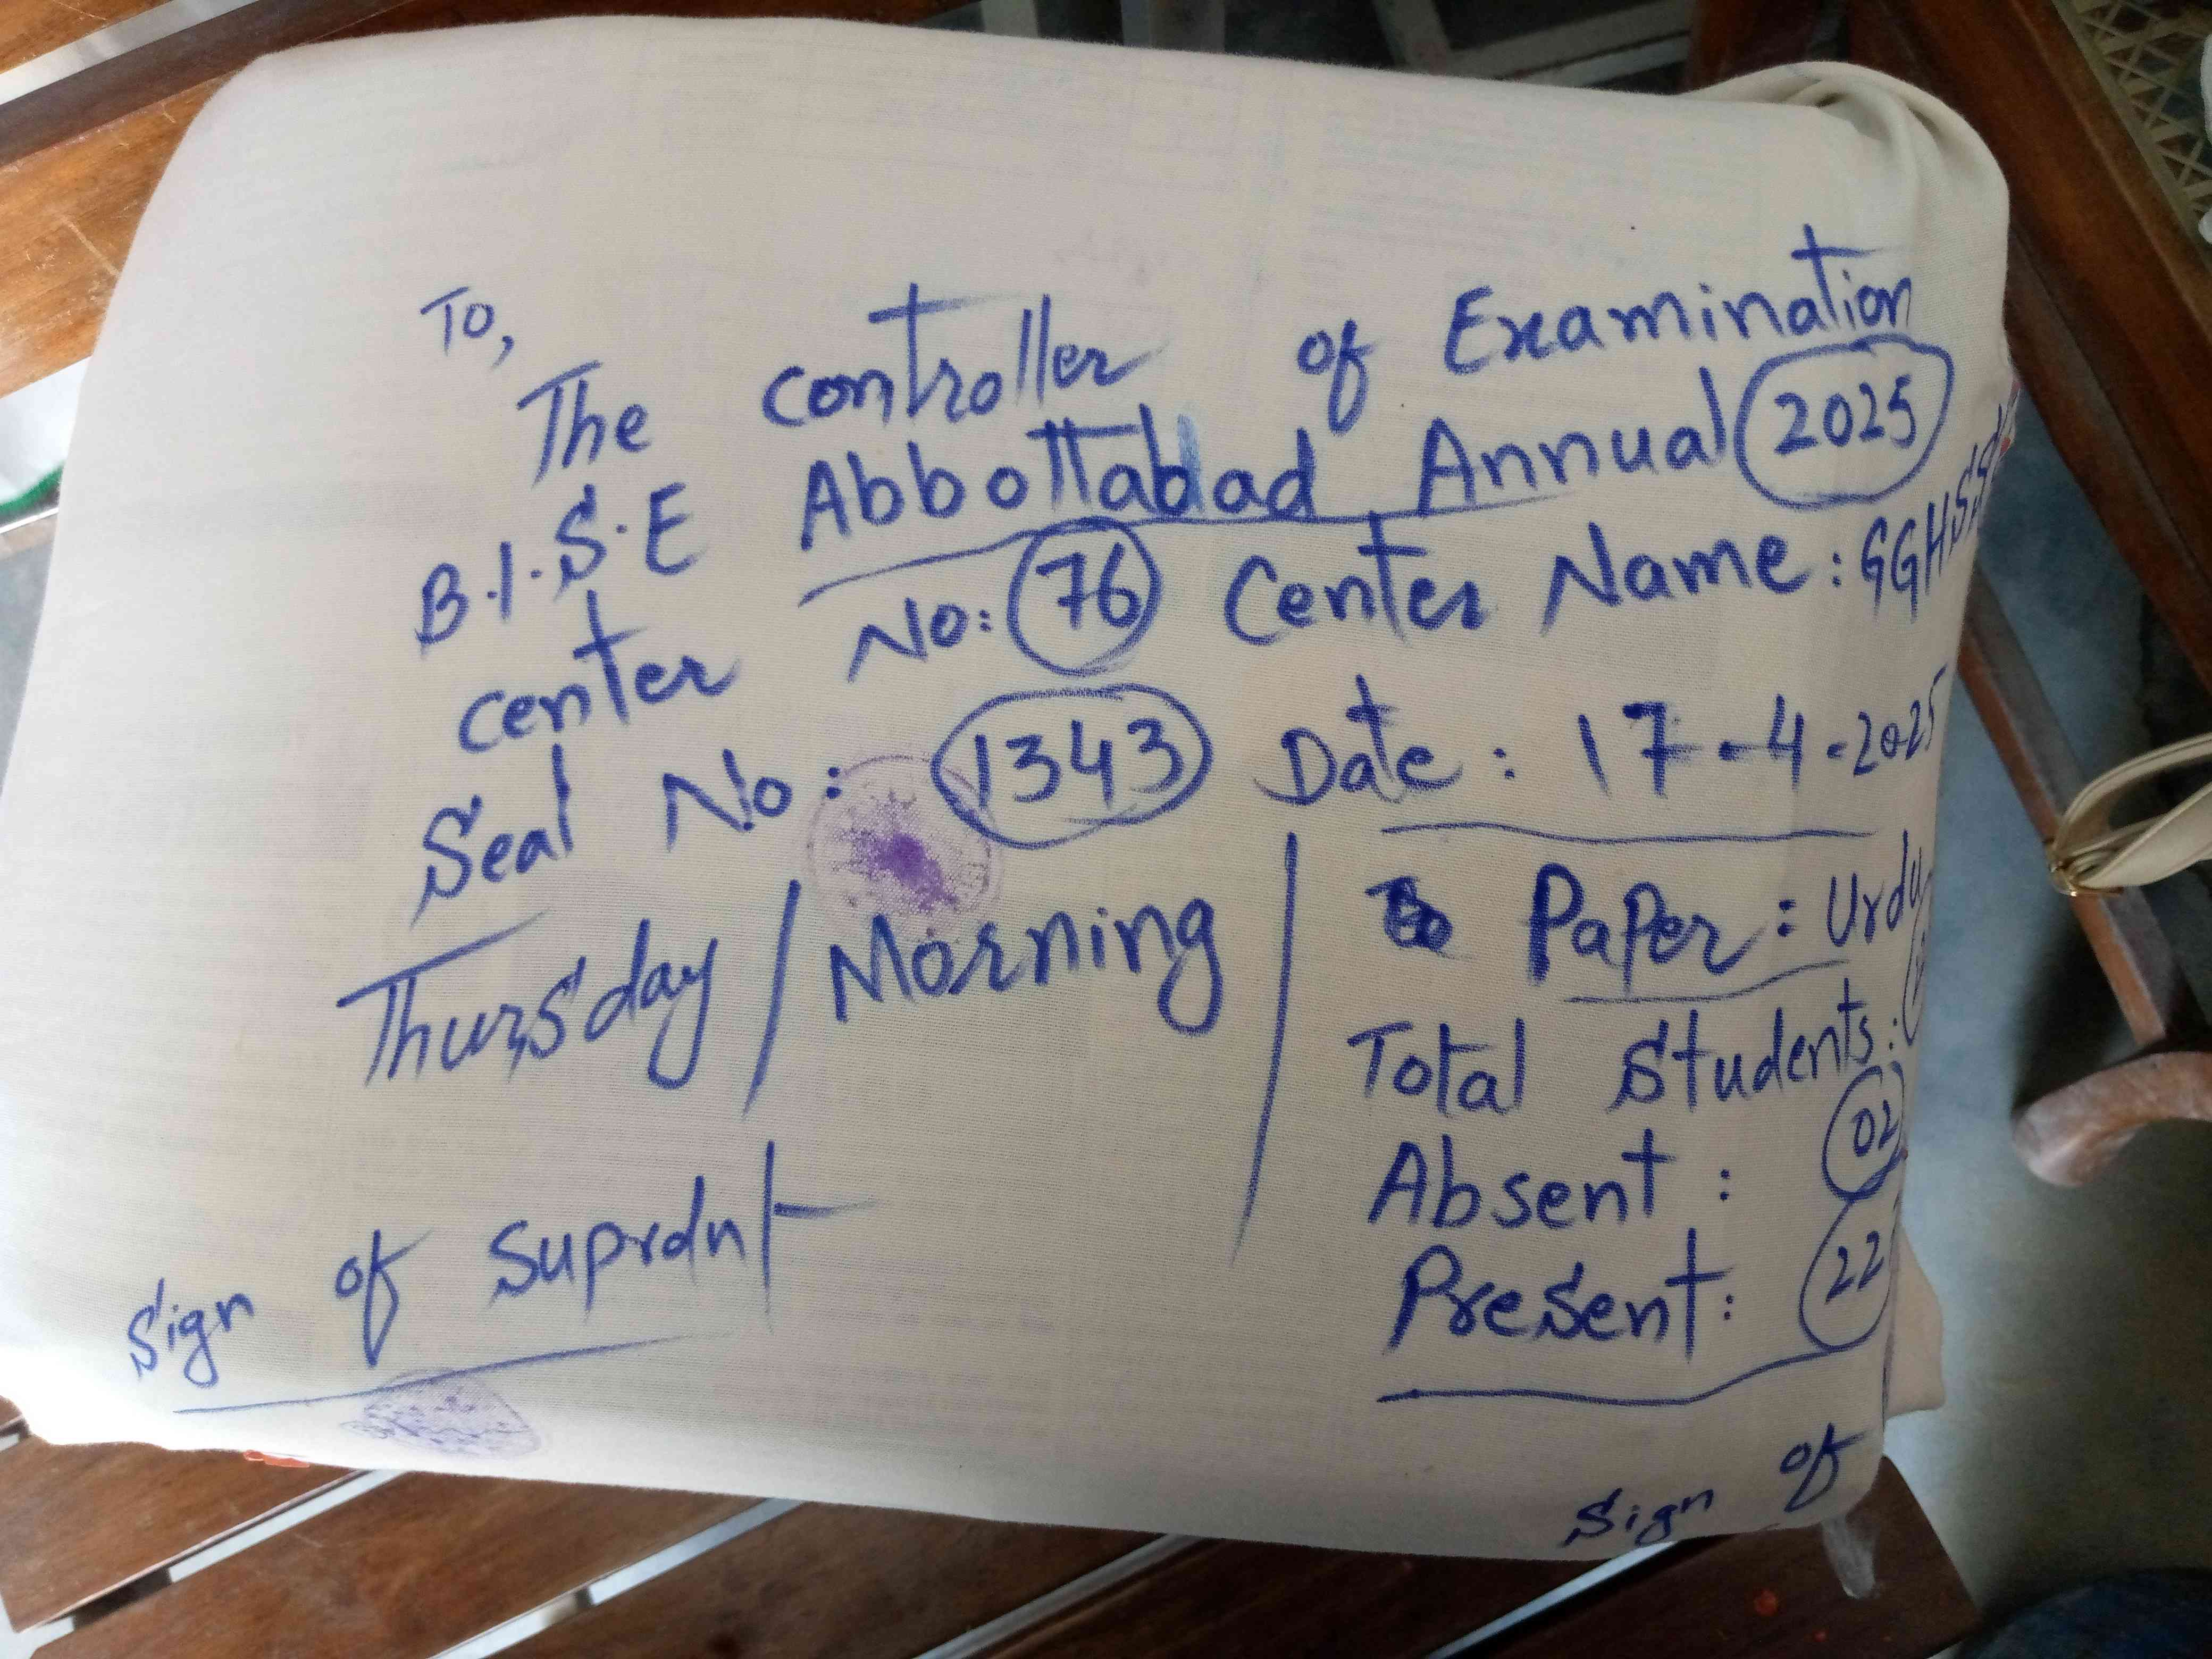 To,
The controller of Examination
B.I.S.E Abbottabad Annual 2025
center No: 76 Center Name: GGHSS
Seal No: 1343 Date: 17-4-2025
Thursday / Morning
Paper: Urdu
Total Students:
Absent: 02
Present: 22
Sign of Suprdnt
Sign of